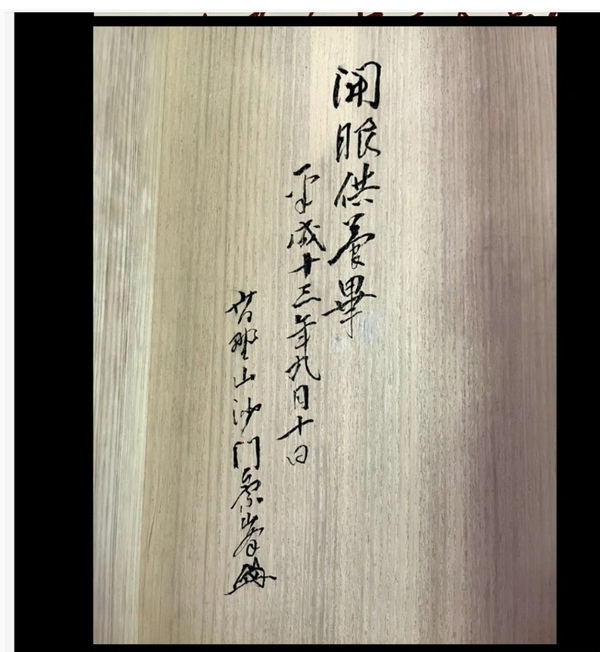 開眼供養畢
平成十三年九月十日
山沙門